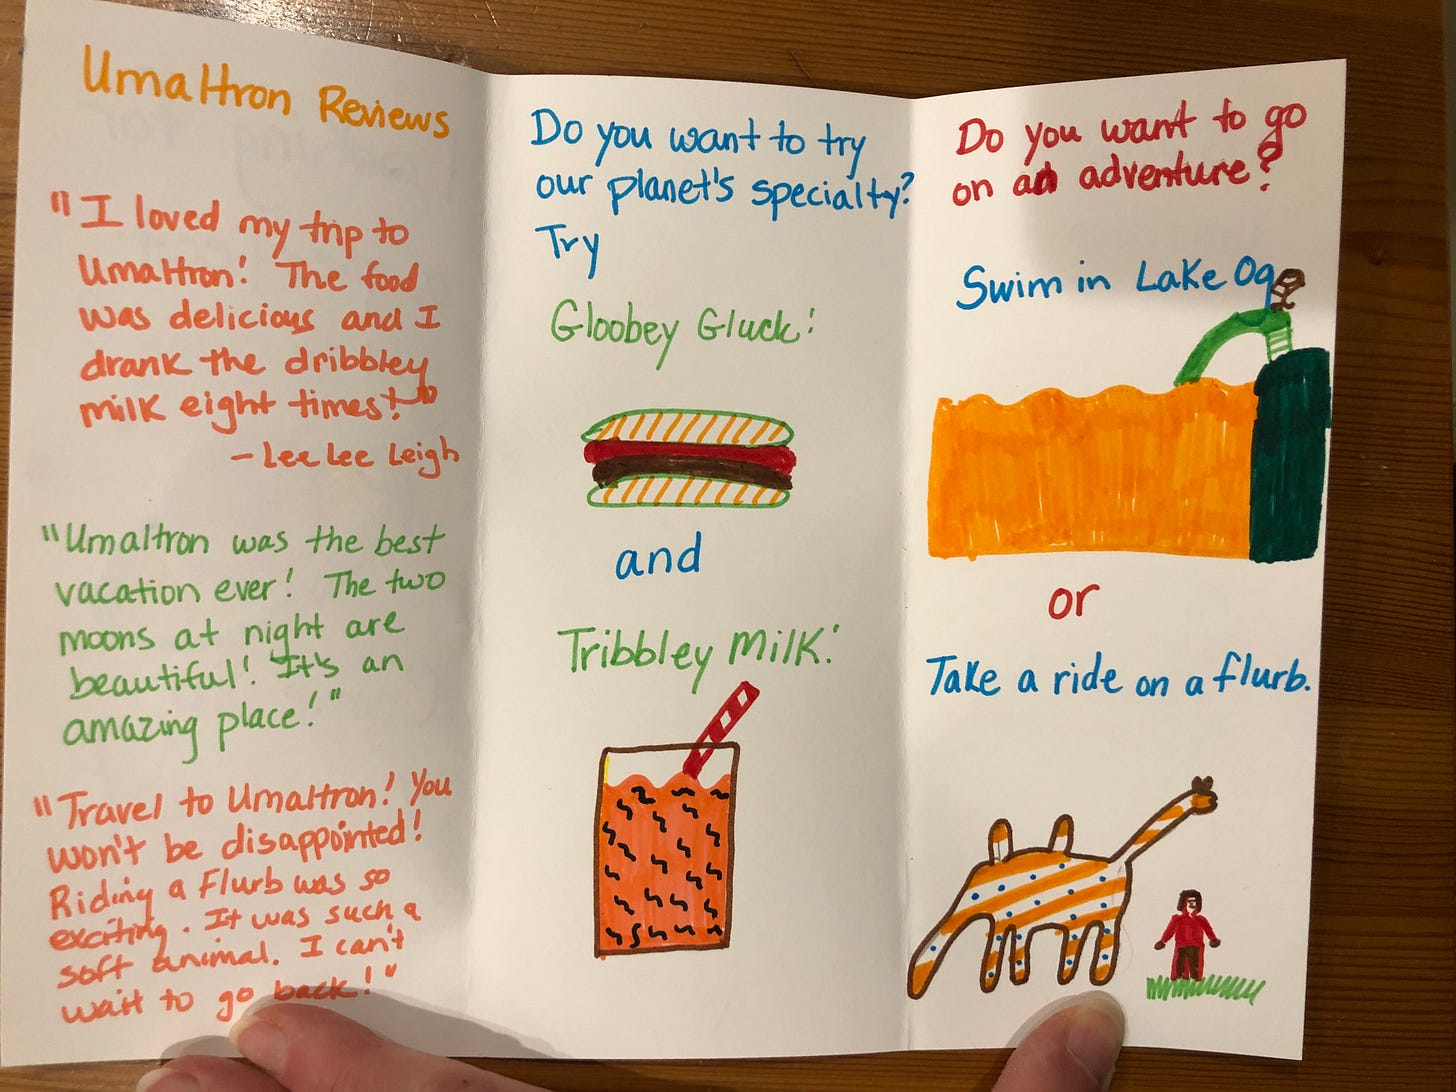 Umaltron Reviews
"I loved my trip to
Umaltron! The food
was delicious and I
drank the dribbley
milk eight times!"
- Lee Lee Leigh
"Umaltron was the best
vacation ever! The two
moons at night are
beautiful! It's an
amazing place!"
"Travel to Umaltron! You
won't be disappointed!
Riding a Flurb was so
exciting. It was such a
soft animal. I can't
wait to go back!"
Do you want to try
our planet's specialty?
Try
Gloobey Gluck:
and
Tribbley Milk:
Do you want to go
on an adventure?
Swim in Lake Og
or
Take a ride on a flurb.